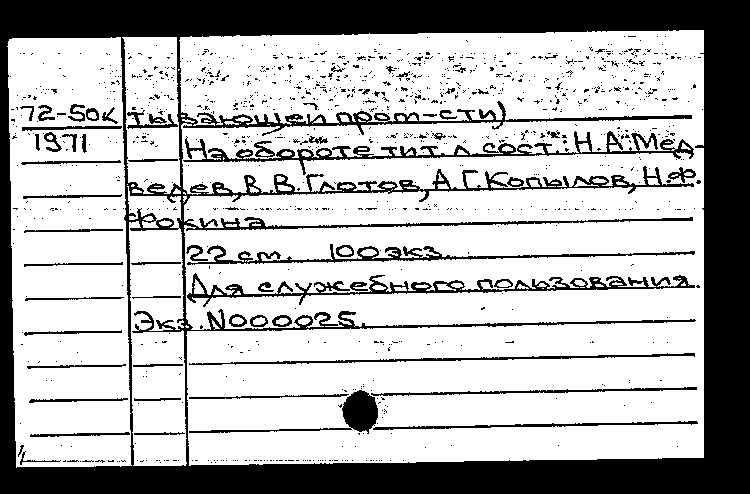 72-50к тывающей пром-сти)
1971 На обороте тит. л. сост.: Н.А.Мед-
ведев, В.В.Глотов, А.Г.Копылов, Н.Ф.
Фокина
22 см. 100 экз.
Для служебного пользования.
Экз. N000025.